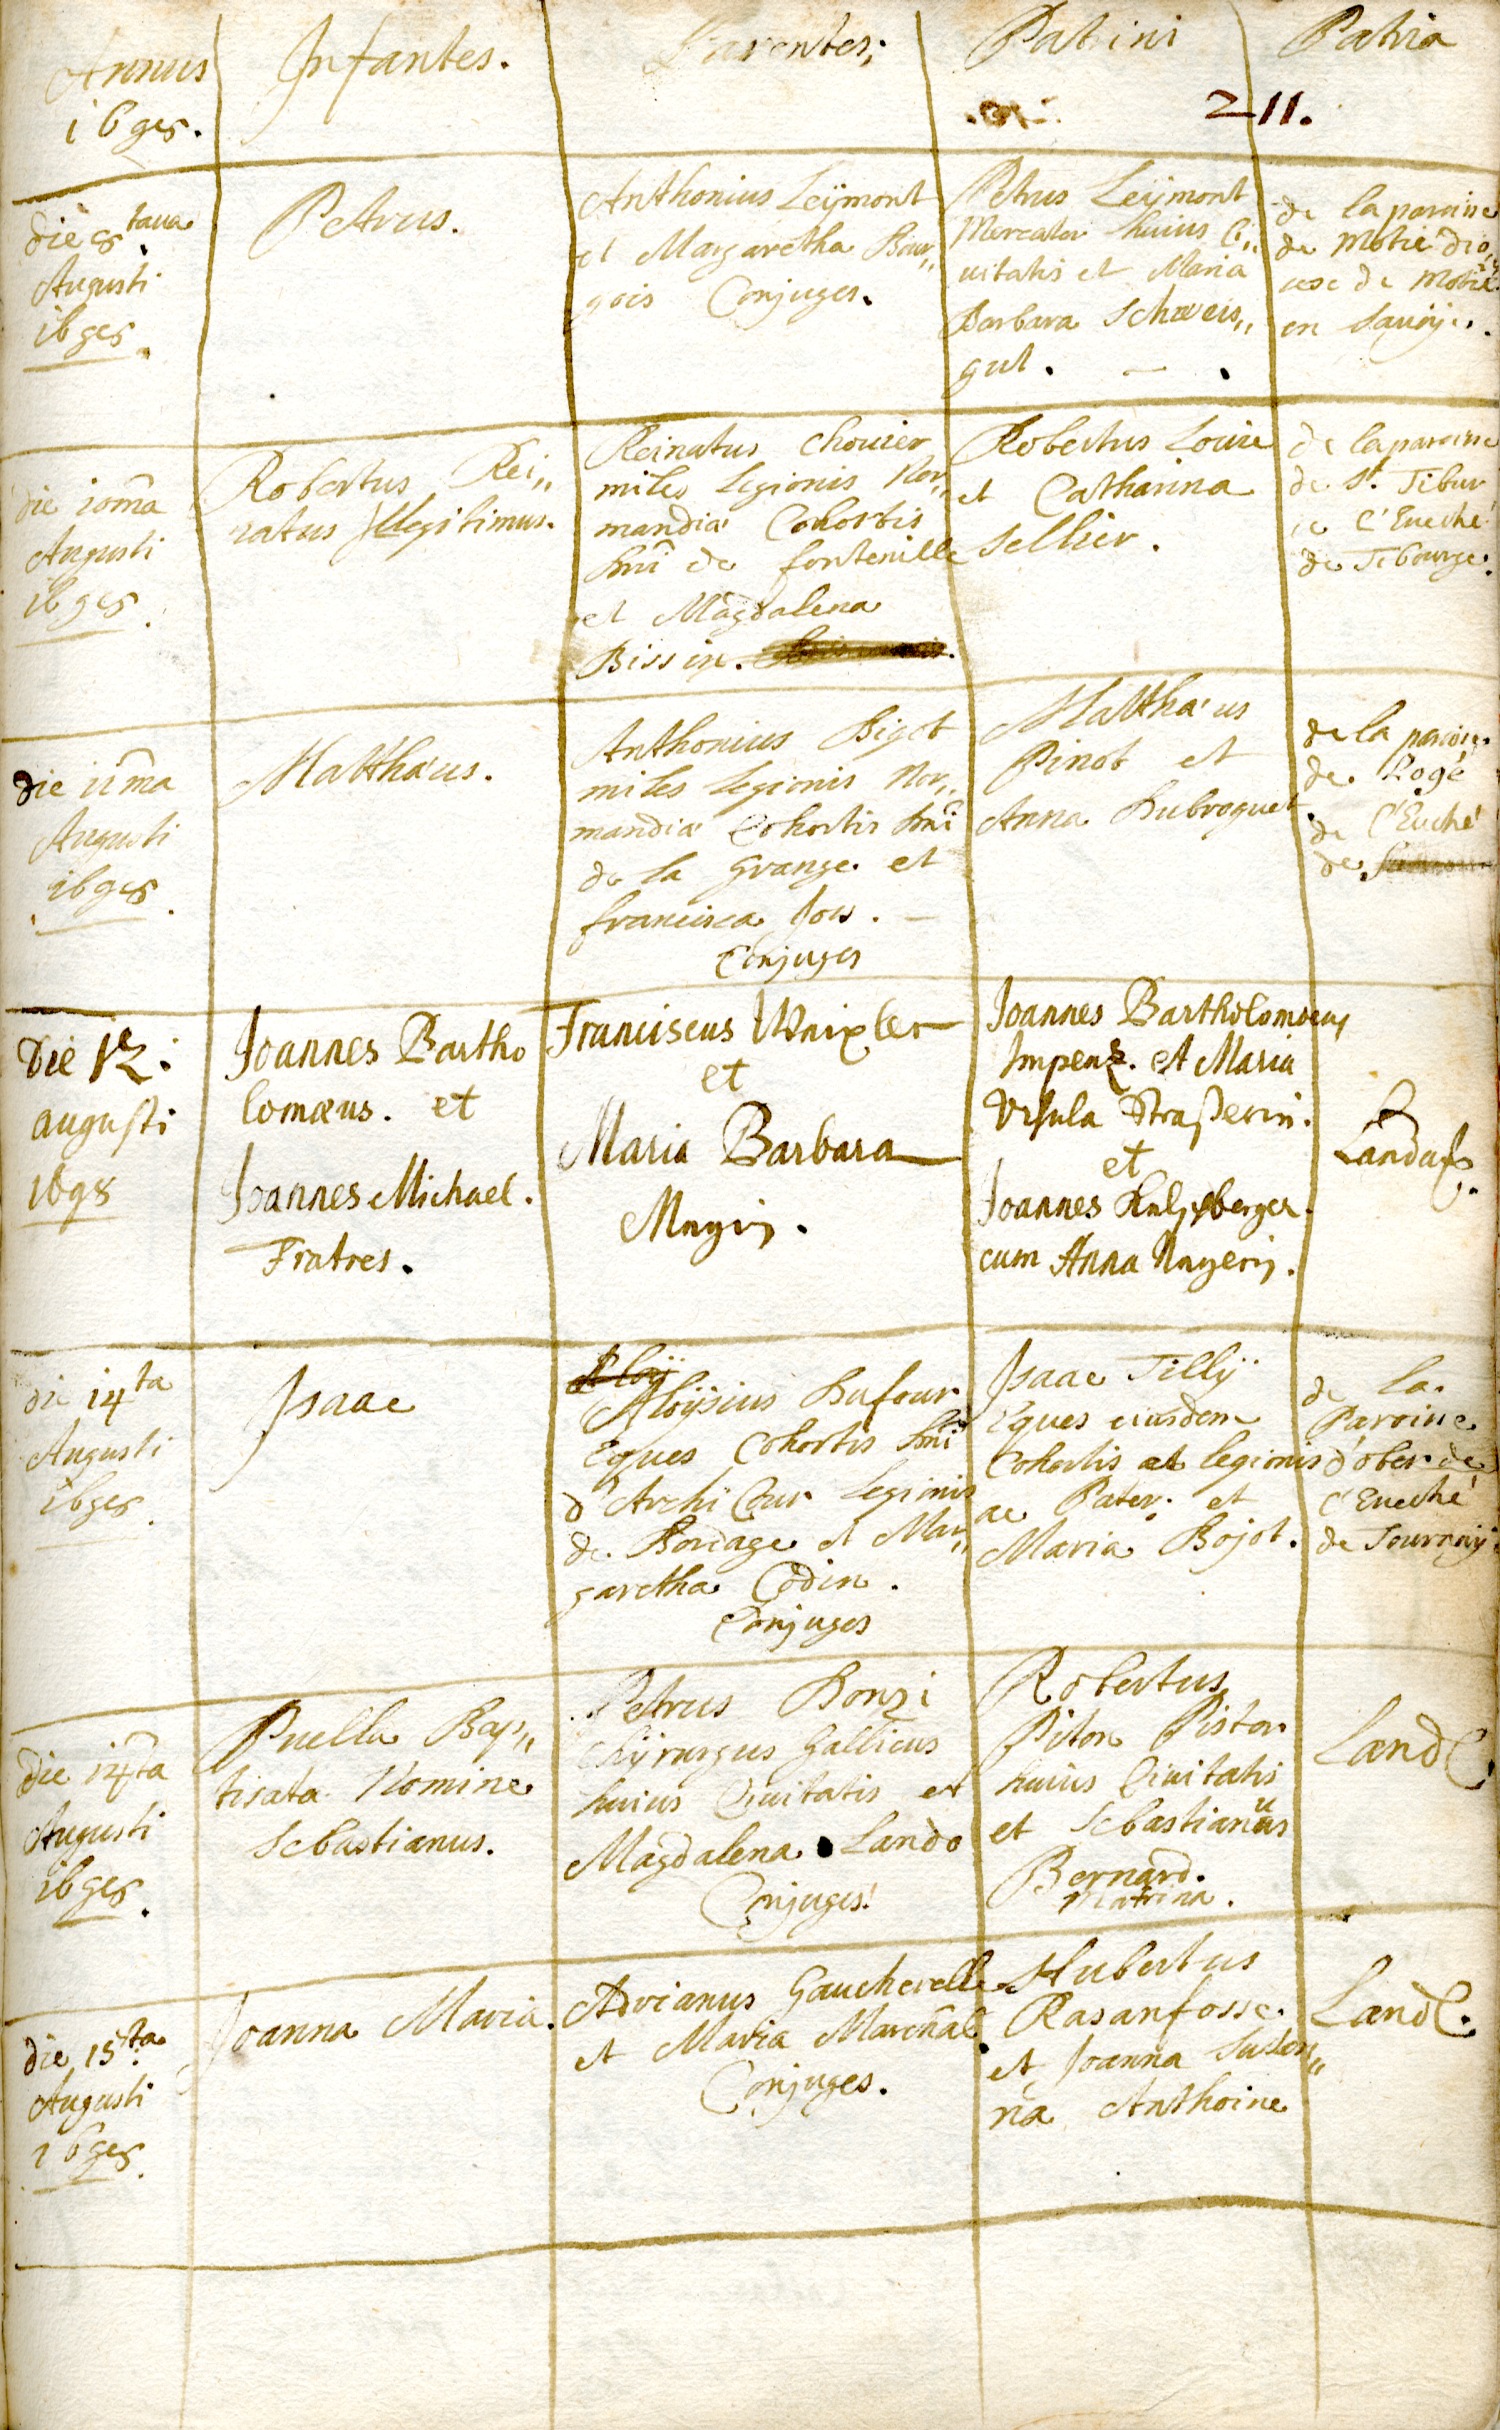 Annus
1698.
Infantes.
Parentes;
Patrini
Patria
211.
die 8tava
Augusti
1698.
Petrus.
Anthonius Leÿmont
et Margaretha Bour„
gois Conjuges.
Petrus Leÿmont
Mercator huius Ci„
uitatis et Maria
Barbara Schweis„
gut.
de la paroisse
de Motié dio„
cese de Motié
en Sauoÿe.
die 10ma
Augusti
1698.
Robertus Rei„
natus Illegitimus.
Reinatus Chouier
miles Legionis Nor„
mandiæ Cohortis
Dni de fontenille
et Magdalena
Bissin.
Robertus Louie
et Catharina
Sellier.
de la paroisse
de St. Tibur
ce l'Eueché
de Tibourge.
die 11ma
Augusti
1698.
Matthæus.
Anthonius Bigot
miles Legionis Nor„
mandiæ Cohortis Dni
de la Grange et
francisca Jou.
Conjuges
Matthæus
Pinot et
Anna Dubroquet.
de la paroisse
de Logé
de l'Euché
de
Die 12.
augusti
1698
Joannes Bartho
lomæus. et
Joannes Michael.
Fratres.
Franciscus Waixler
et
Maria Barbara
Mayin.
Joannes Bartholomoeus
Impens. et Maria
Vrsula Straßerin.
et
Joannes
cum Anna Mayerin.
Landau.
die 14ta
Augusti
1698.
Isaac
Aloÿ
Aloÿsius Dufour
Eques Cohortis Dni
d'Archi Cour Legionis
de Bordage et Mar„
garetha Codin.
Conjuges
Isaac Tillÿ
Eques eiusdem
Cohortis et legionis
ac Pater. et
Maria Bojot.
de la
Paroisse
d'ober de
l'Eueché
de Tournaÿ.
die 14ta
Augusti
1698.
Puella Bap„
tisata Nomine
Sebastianus.
Petrus Bonzi
Chÿrurgus Gallicus
huius Ciuitatis et
Magdalena Lando
Conjuges.
Robertus
Piton Pistor
huius Ciuitatis
et Sebastianus
Bernard.
Matrina.
Land.
die 15ta
Augusti
1698.
Joanna Maria.
Adrianus Gaucherelle
et Maria Marchal
Conjuges.
Hubertus
Rasanfosse
et Joanna Susan„
na Anthoine
Land.